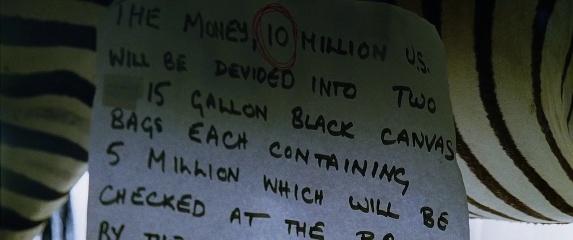 THE MONEY, 10 MILLION U.S.
WILL BE DEVIDED INTO TWO
15 GALLON BLACK CANVAS
BAGS EACH CONTAINING
5 MILLION WHICH WILL BE
CHECKED AT THE
BY